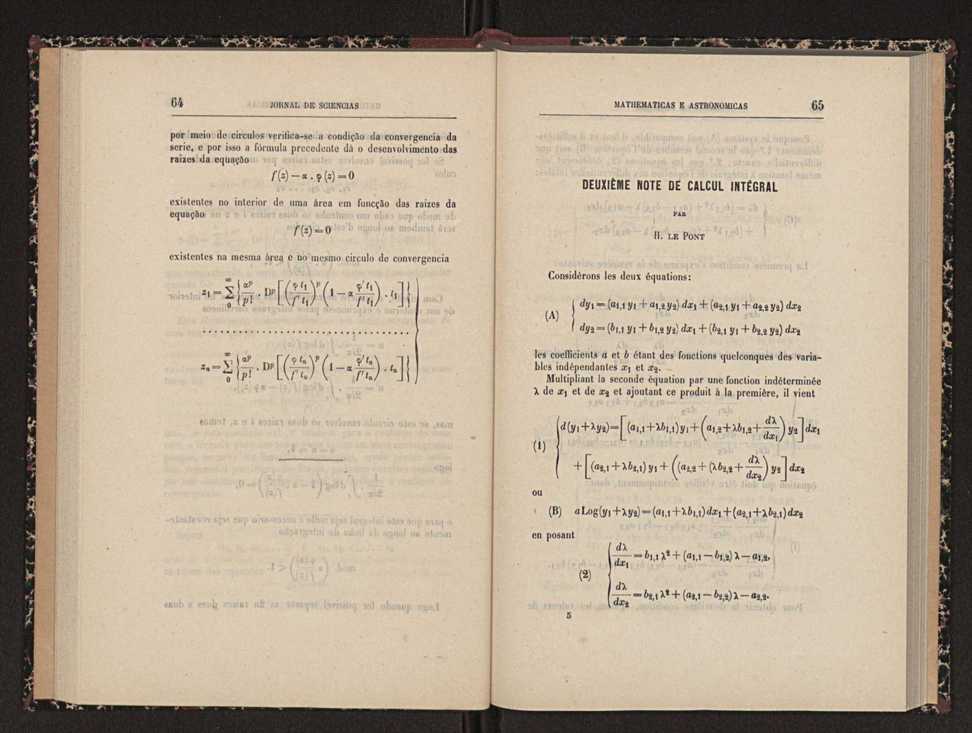 64 JORNAL DE SCIENCIAS
por meio de circulos verifica-se a condição da convergencia da
serie, e por isso a fórmula precedente dá o desenvolvimento das
raizes da equação
f(z) — α . φ (z) = 0
existentes no interior de uma área em funcção das raizes da
equação
f(z) = 0
existentes na mesma área e no mesmo circulo de convergencia
z₁ = Σ_0^∞ { αᵖ/p! . Dᵖ [ (φ t₁/f' t₁)ᵖ (1 — α φ' t₁/f' t₁) . t₁ ] }
. . . . . . . . . . . . . . . . . . . . . . . . . . . . . .
zₙ = Σ_0^∞ { αᵖ/p! . Dᵖ [ (φ tₙ/f' tₙ)ᵖ (1 — α φ' tₙ/f' tₙ) . tₙ ] }
MATHEMATICAS E ASTRONOMICAS 65
DEUXIÈME NOTE DE CALCUL INTÉGRAL
PAR
H. LE PONT
Considérons les deux équations:
(A) { dy₁ = (a₁,₁ y₁ + a₁,₂ y₂) dx₁ + (a₂,₁ y₁ + a₂,₂ y₂) dx₂
dy₂ = (b₁,₁ y₁ + b₁,₂ y₂) dx₁ + (b₂,₁ y₁ + b₂,₂ y₂) dx₂
les coefficients a et b étant des fonctions quelconques des varia-
bles indépendantes x₁ et x₂.
Multipliant la seconde équation par une fonction indéterminée
λ de x₁ et de x₂ et ajoutant ce produit à la première, il vient
(1) { d(y₁+λy₂) = [ (a₁,₁+λb₁,₁) y₁ + ( a₁,₂+λb₁,₂ + dλ/dx₁ ) y₂ ] dx₁
+ [ (a₂,₁ + λb₂,₁) y₁ + ( (a₂,₂ + (λb₂,₂ + dλ/dx₂ ) y₂ ] dx₂
ou
(B) aLog(y₁+λy₂) = (a₁,₁+λb₁,₁) dx₁ + (a₂,₁+λb₂,₁) dx₂
en posant
(2) { dλ/dx₁ = b₁,₁ λ² + (a₁,₁ — b₁,₂) λ — a₁,₂,
dλ/dx₂ = b₂,₁ λ² + (a₂,₁ — b₂,₂) λ — a₂,₂.
5